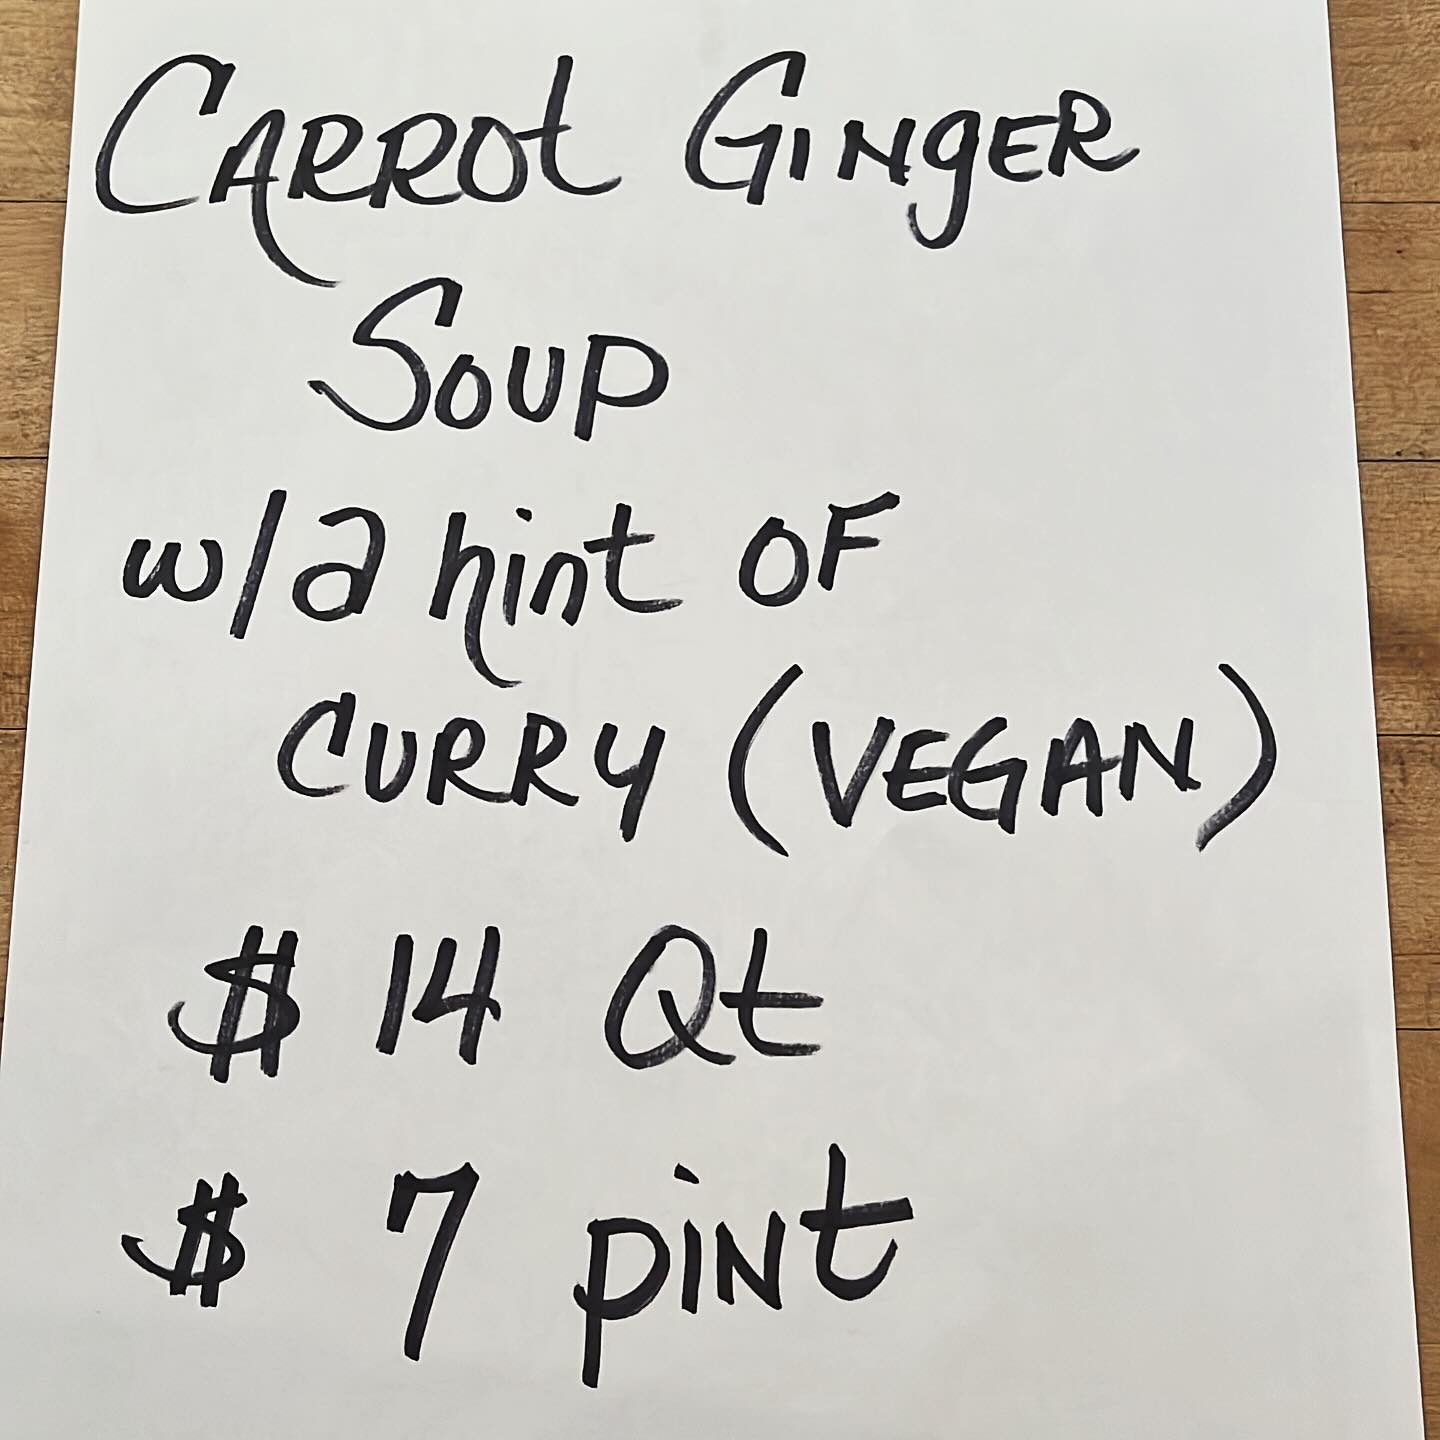 CARROt GINgER
SOUP
w/a hint OF
CURRY (VEGAN)
$ 14 Qt
$ 7 pint